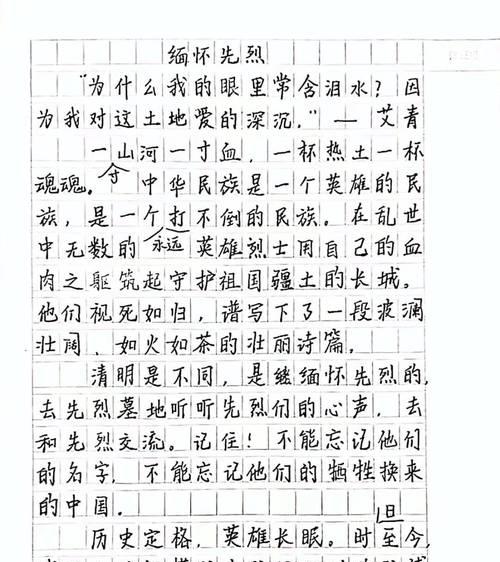 缅怀先烈
"为什么我的眼里常含泪水？因
为我对这土地爱的深沉。" — 艾青
一寸山河一寸血，一杯热土一杯
魂魂。中华民族是一个英雄的民
族，是一个永远打不倒的民族。在乱世
中无数的英雄烈士用自己的血
肉之躯筑起守护祖国疆土的长城。
他们视死如归，谱写下了一段波澜
壮阔、如火如茶的壮丽诗篇。
清明是不同，是缅怀先烈的，
去先烈墓地听听先烈们的心声，去
和先烈交流。记住！不能忘记他们
的名字，不能忘记他们的牺牲换来
的中国。
历史定格，英雄长眠。时至今日，